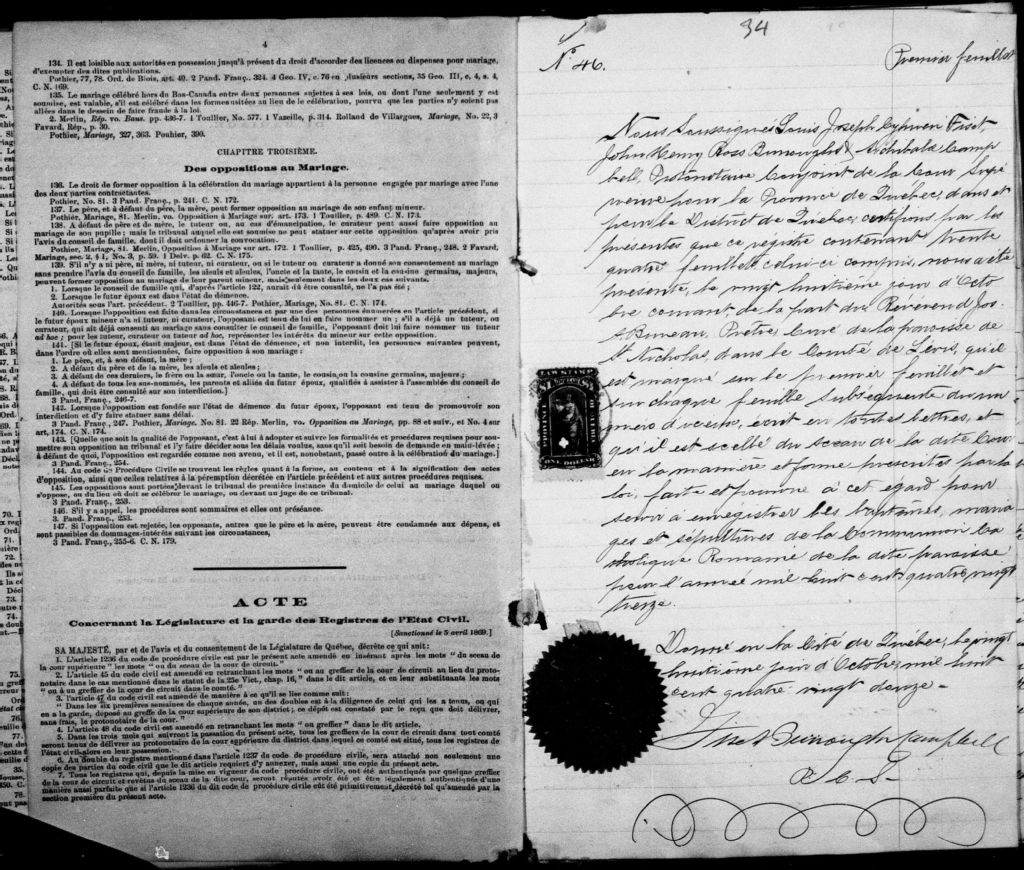 4
134. Il est loisible aux autorités en possession jusqu'à présent du droit d'accorder les licences ou dispenses pour mariage,
d'exempter des dites publications.
Pothier, 77, 78. Ord. de Blois, art. 40. 2 Pand. Franç., 324. 4 Geo. IV, c. 76 en plusieurs sections, 35 Geo. III, c. 4, s. 4,
C. N. 169.
135. Le mariage célébré hors du Bas-Canada entre deux personnes sujettes à ses lois, ou dont l'une seulement y est
soumise, est valable, s'il est célébré dans les formes usitées au lieu de la célébration, pourvu que les parties n'y soient pas
allées dans le dessein de faire fraude à la loi.
2. Merlin, Rép. vo. Bans. pp. 436-7. 1 Toullier, No. 577. 1 Vazeille, p. 314. Rolland de Villargues, Mariage, No. 22, 3
Favard, Rép., p. 30.
Pothier, Mariage, 327, 363. Pouhier, 390.
CHAPITRE TROISIÈME.
Des oppositions au Mariage.
136. Le droit de former opposition à la célébration du mariage appartient à la personne engagée par mariage avec l'une
des deux parties contractantes.
Pothier, No. 81. 3 Pand. Franç., p. 241. C. N. 172.
137. Le père, et à défaut du père, la mère, peut former opposition au mariage de son enfant mineur.
Pothier, Mariage, 81. Merlin, vo. Opposition à Mariage sur. art. 173. 1 Toullier, p. 489. C. N. 173.
138. A défaut de père et de mère, le tuteur ou, au cas d'émancipation, le curateur peut aussi faire opposition au
mariage de son pupille; mais le tribunal auquel elle est soumise ne peut statuer sur cette opposition qu'après avoir pris
l'avis du conseil de famille, dont il doit ordonner la convocation.
Pothier, Mariage, 81. Merlin, Opposition à Mariage sur art. 172. 1 Toullier, p. 425, 490. 3 Pand. Franç., 248. 2 Favard,
Mariage, sec. 2, § 1, No. 3, p. 59. 1 Delv. p. 62. C. N. 175.
139. S'il n'y a ni père, ni mère, ni tuteur, ni curateur, ou si le tuteur ou curateur a donné son consentement au mariage
sans prendre l'avis du conseil de famille, les aïeuls et aïeules, l'oncle et la tante, le cousin et la cousine germains, majeurs,
peuvent former opposition au mariage de leur parent mineur, mais seulement dans les deux cas suivants.
1. Lorsque le conseil de famille qui, d'après l'article 122, aurait dû être consulté, ne l'a pas été;
2. Lorsque le futur époux est dans l'état de démence.
Autorités sous l'art. précédent. 2 Toullier, pp. 446-7. Pothier, Mariage, No. 81. C. N. 174.
140. Lorsque l'opposition est faite dans les circonstances et par une des personnes énumérées en l'article précédent, si
le futur époux mineur n'a ni tuteur, ni curateur, l'opposant est tenu de lui en faire nommer un; s'il a déjà un tuteur, ou
curateur, qui ait déjà consenti au mariage sans consulter le conseil de famille, l'opposant doit lui faire nommer un tuteur
ad hoc; pour les tuteur, curateur ou tuteur ad hoc, représenter les intérêts du mineur sur cette opposition.
141. [Si le futur époux, étant majeur, est dans l'état de démence, et non interdit, les personnes suivantes peuvent,
dans l'ordre où elles sont mentionnées, faire opposition à son mariage:
1. Le père, et, à son défaut, la mère;
2. A défaut du père et de la mère, les aïeuls et aïeules;
3. A défaut de ces derniers, le frère ou la sœur, l'oncle ou la tante, le cousin ou la cousine germains, majeurs;
4. A défaut de tous les sus-nommés, les parents et alliés du futur époux, qualifiés à assister à l'assemblée du conseil de
famille, qui doit être consulté sur son interdiction.]
3 Pand. Franç., 246-7.
142. Lorsque l'opposition est fondée sur l'état de démence du futur époux, l'opposant est tenu de promouvoir son
interdiction et d'y faire statuer sans délai.
3 Pand. Franç., 247. Pothier, Mariage. No. 81. 22 Rép. Merlin, vo. Opposition au Mariage, pp. 88 et suiv., et No. 4 sur
art., 174. C. N. 174.
143. [Quelle que soit la qualité de l'opposant, c'est à lui à adopter et suivre les formalités et procédures requises pour sou-
mettre son opposition au tribunal et l'y faire décider sous les délais voulus, sans qu'il soit besoin de demande en main-levée;
à défaut de quoi, l'opposition est regardée comme non avenue, et il est, nonobstant, passé outre à la célébration du mariage.]
3 Pand. Franç., 254.
144. Au code de Procédure Civile se trouvent les règles quant à la forme, au contenu et à la signification des actes
d'opposition, ainsi que celles relatives à la péremption décrétée en l'article précédent et aux autres procédures requises.
145. Les oppositions sont portées devant le tribunal de première instance du domicile de celui au mariage duquel on
s'oppose, ou du lieu où doit se célébrer le mariage, ou devant un juge de ce tribunal.
3 Pand. Franç., 253.
146. S'il y a appel, les procédures sont sommaires et elles ont préséance.
3. Pand. Franç., 253.
147. Si l'opposition est rejetée, les opposants, autres que le père et la mère, peuvent être condamnés aux dépens, et
sont passibles de dommages-intérêts suivant les circonstances,
3 Pand. Franç., 255-6. C. N. 179.
ACTE
Concernant la Législature et la garde des Registres de l'Etat Civil.
[Sanctionné le 5 avril 1869.]
SA MAJESTÉ, par et de l'avis et du consentement de la Législature de Québec, décrète ce qui suit:
1. L'article 1236 du code de procédure civile est par le présent acte amendé en insérant après les mots " du sceau de
la cour supérieure " les mots " ou du sceau de la cour de circuit."
2. L'article 45 du code civil est amendé en retranchant les mots " ou au greffier de la cour de circuit au lieu du proto-
notaire dans le cas mentionné dans le statut de la 25e Vict., chap. 16," dans le dit article, et en leur substituant les mots
" ou à un greffier de la cour de circuit dans le comté."
3. l'article 47 du code civil est amendé de manière à ce qu'il se lise comme suit:
" Dans les six premières semaines de chaque année, un des doubles est à la diligence de celui qui les a tenus, ou qui
en a la garde, déposé au greffe de la cour supérieure de son district; ce dépôt est constaté par le reçu que doit délivrer,
sans frais, le protonotaire de la cour."
4. L'article 48 du code civil est amendé en retranchant les mots " ou greffier " dans le dit article.
5. Dans les trois mois qui suivront la passation du présent acte, tous les greffiers de la cour de circuit dans tout comté
seront tenus de délivrer au protonotaire de la cour supérieure du district dans lequel ce comté est situé, tous les registres de
l'état civil alors en leur possession.
6. Au double du registre mentionné dans l'article 1237 du code de procédure civile, sera attaché non seulement une
copie des parties du code civil que le dit article requiert d'y annexer, mais aussi une copie du présent acte.
7. Tous les registres qui, depuis la mise en vigueur du code procédure civile, ont été authentiqués par quelque greffier
de la cour de circuit et revêtus du sceau de la dite cour, seront réputés avoir été et être légalement authentiqués d'une
manière aussi parfaite que si l'article 1236 du dit code de procédure civile eût été primitivement décrété tel qu'amendé par la
section première du présent acte.
34
No 46. Premier feuillet
Nous Soussignés Louis Joseph Cyprien Fiset,
John Henry Ross Burroughs & Archibald Camp
bell, Protonotaire Conjoint de la Cour Supé
rieure pour la Province de Québec, dans et
pour le District de Québec, certifions par les
présentes que ce régistre contenant trente
quatre feuillets celui-ci compris, nous a été
présenté, le vingt huitième jour d'Octo
bre courant, de la part du Révérend Jos
Bureau, Prêtre Curé de la paroisse de
St Nicholas, dans le Comté de Lévis, qu'il
est marqué sur le premier feuillet et
sur chaque feuille subséquente du nu
méro d'iceux, écrit en toutes lettres, et
qu'il est scellé du sceau de la dite Cour
en la manière et forme prescrites par la
loi, faite et pourvue à cet égard pour
servir à enregistrer les baptêmes, maria
ges et sépultures de la Communion Ca
tholique Romaine de la dite paroisse
pour l'année mil huit cent quatre vingt
treize.
Donné en la Cité de Québec, le vingt
huitième jour d'Octobre mil huit
cent quatre vingt douze -
Fiset Burroughs Campbell
P. C. S.
ONE DOLLAR